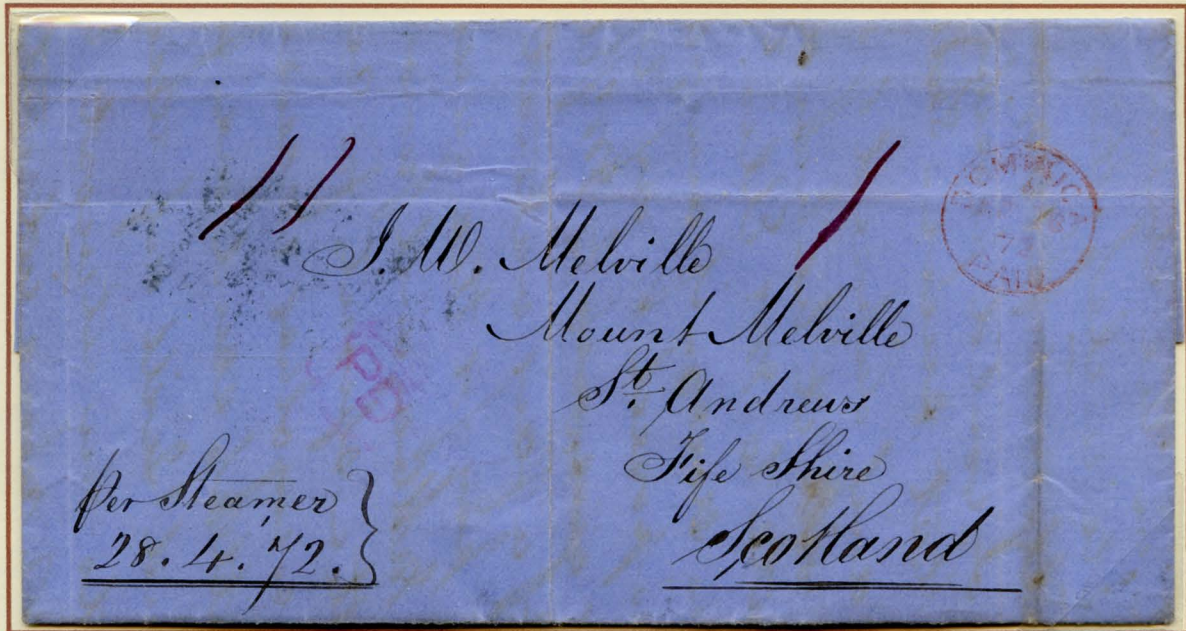 DOMINICA
72
PAID
J. W. Melville
Mount Melville
St. Andrews
Fife Shire
Scotland
PD
per Steamer
28.4.72.